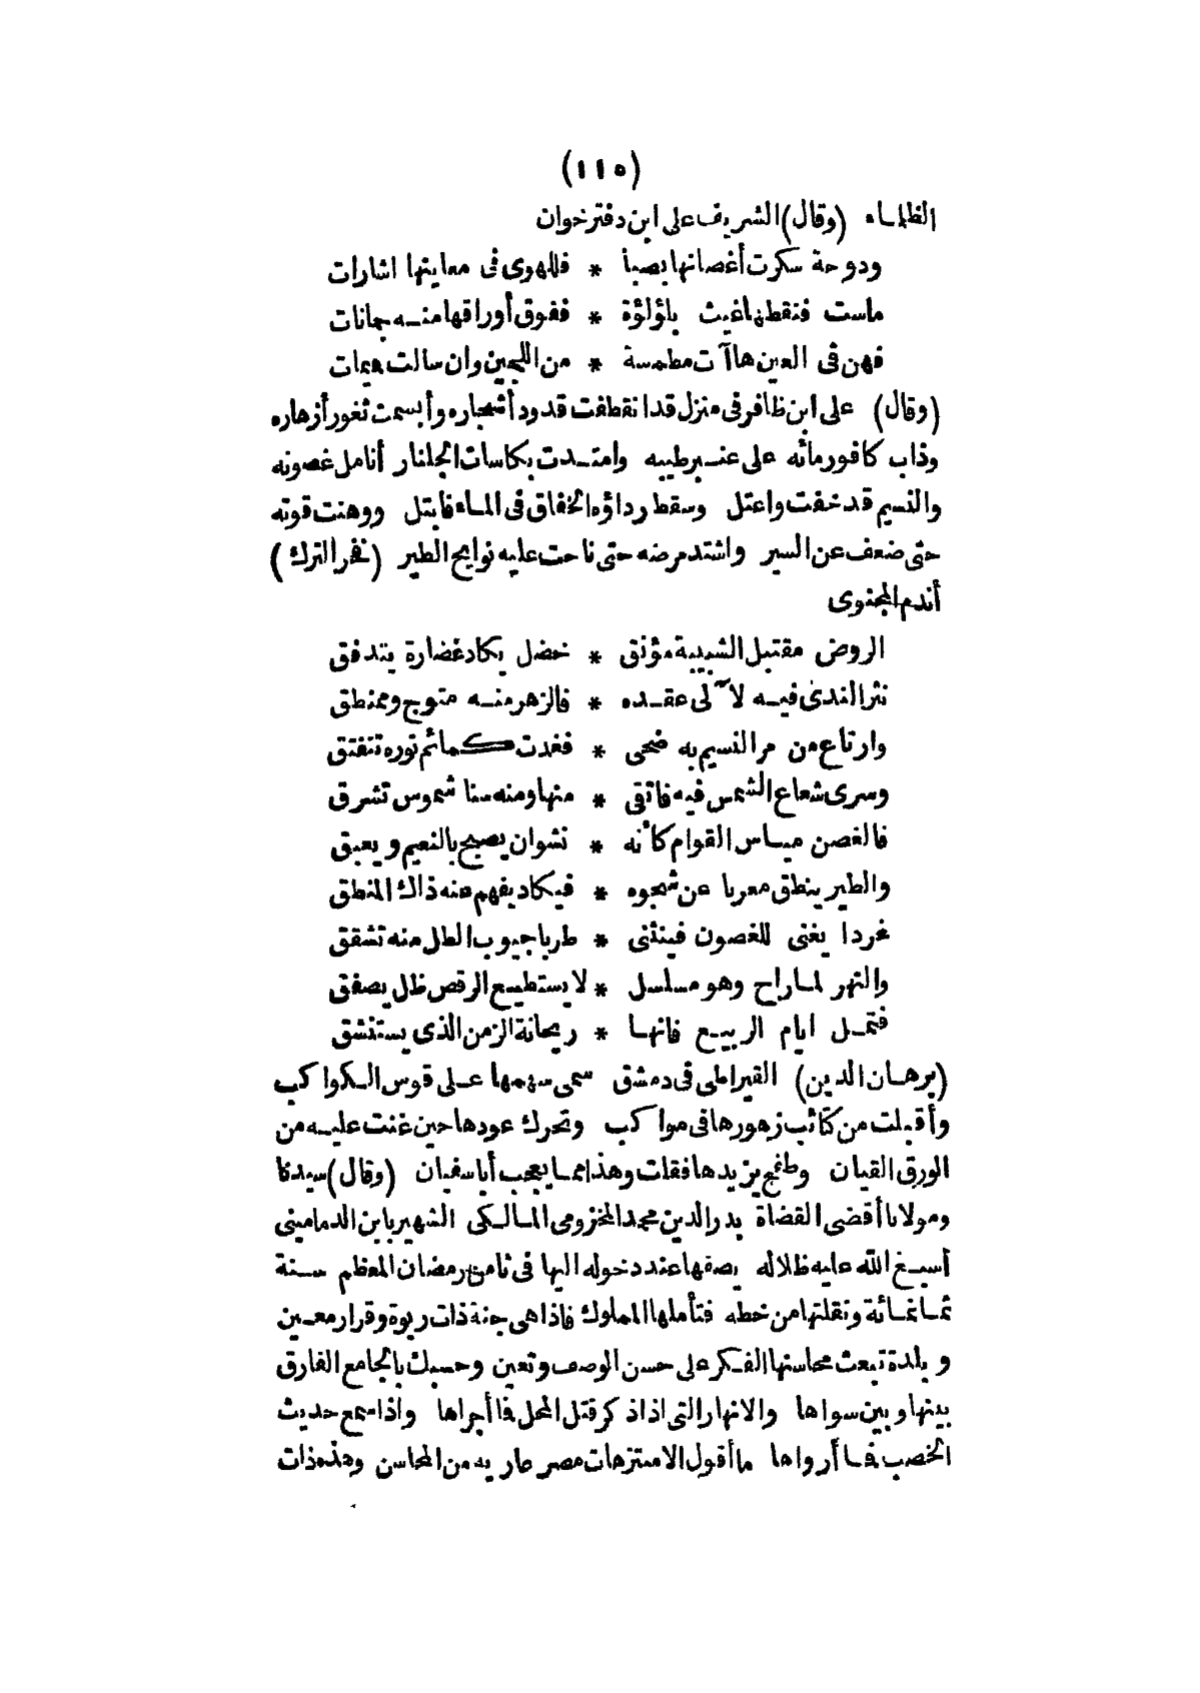 (١١٥)
الظلماء (وقال) الشريف على ابن دفترخوان
ودوحة سكرت أغصانها بصبا * فللهوى فى معاينها اشارات
ماست فنقطها غيث بلؤلؤة * ففوق أوراقها منه جمانات
فهن فى العين هاآت مطمسة * من اللجين وان سالت فيمات
(وقال) على ابن ظافر فى منزل قد انقطفت قدود أشجاره وأبسمت ثغور أزهاره
وذاب كافور مائه على عنبر طيبه وامتدت بكاسات الجلنار أنامل غصونه
والنسيم قد خفت واعتل وسقط رداؤه الخفاق فى الماء فابتل ووهنت قوته
حتى ضعف عن السير واشتد مرضه حتى ناحت عليه نوايح الطير (فخر الترك)
أندم المجنوى
الروض مقتبل الشبيبة مؤنق * خضل يكاد غضارة يتدفق
نثر الندى فيه لآلى عقده * فالزهر منه متوج وممنطق
وارتاع من مر النسيم به ضحى * فغدت كمائم نوره تتفتق
وسرى شعاع الشمس فيه فاتقى * منها ومنه سنا شموس تشرق
فالغصن مياس القوام كأنه * نشوان يصبح بالنعيم و يعبق
والطير ينطق معربا عن شجوه * فيكاد يفهم عنه ذاك المنطق
غردا يغنى للغصون فينثنى * طربا جيوب الطل منه تشقق
والنهر لما راح وهو مسلسل * لا يستطيع الرقص ظل يصفق
فتمل ايام الربيع فانها * ريحانة الزمن الذى يستنشق
(برهان الدين) القيراطى فى دمشق سمى سهمها على قوس الكواكب
وأقبلت من كتائب زهورها فى مواكب وتحرك عودها حين غنت عليه من
الورق القيان وطفح يزيدها فقات وهذا مما يعجب أبا سفيان (وقال) سيدنا
ومولانا أقضى القضاة بدر الدين محمد المخزومى المالكى الشهير بابن الدمامينى
أسبغ الله عليه ظلاله يصفها عند دخوله اليها فى ثامن رمضان المعظم سنة
ثمانمائة ونقلتها من خطه فتأملها المملوك فاذا هى جنة ذات ربوة وقرار معين
و بلدة تبعث محاسنها الفكر على حسن الوصف وتعين وحسبك بالجامع الفارق
بينها وبين سواها والانهار التى اذا ذكر قتل المحل فما أجراها واذا سمع حديث
الخصب فما أرواها ما أقول الا متنزهات مصر عارية من المحاسن وهذه ذات